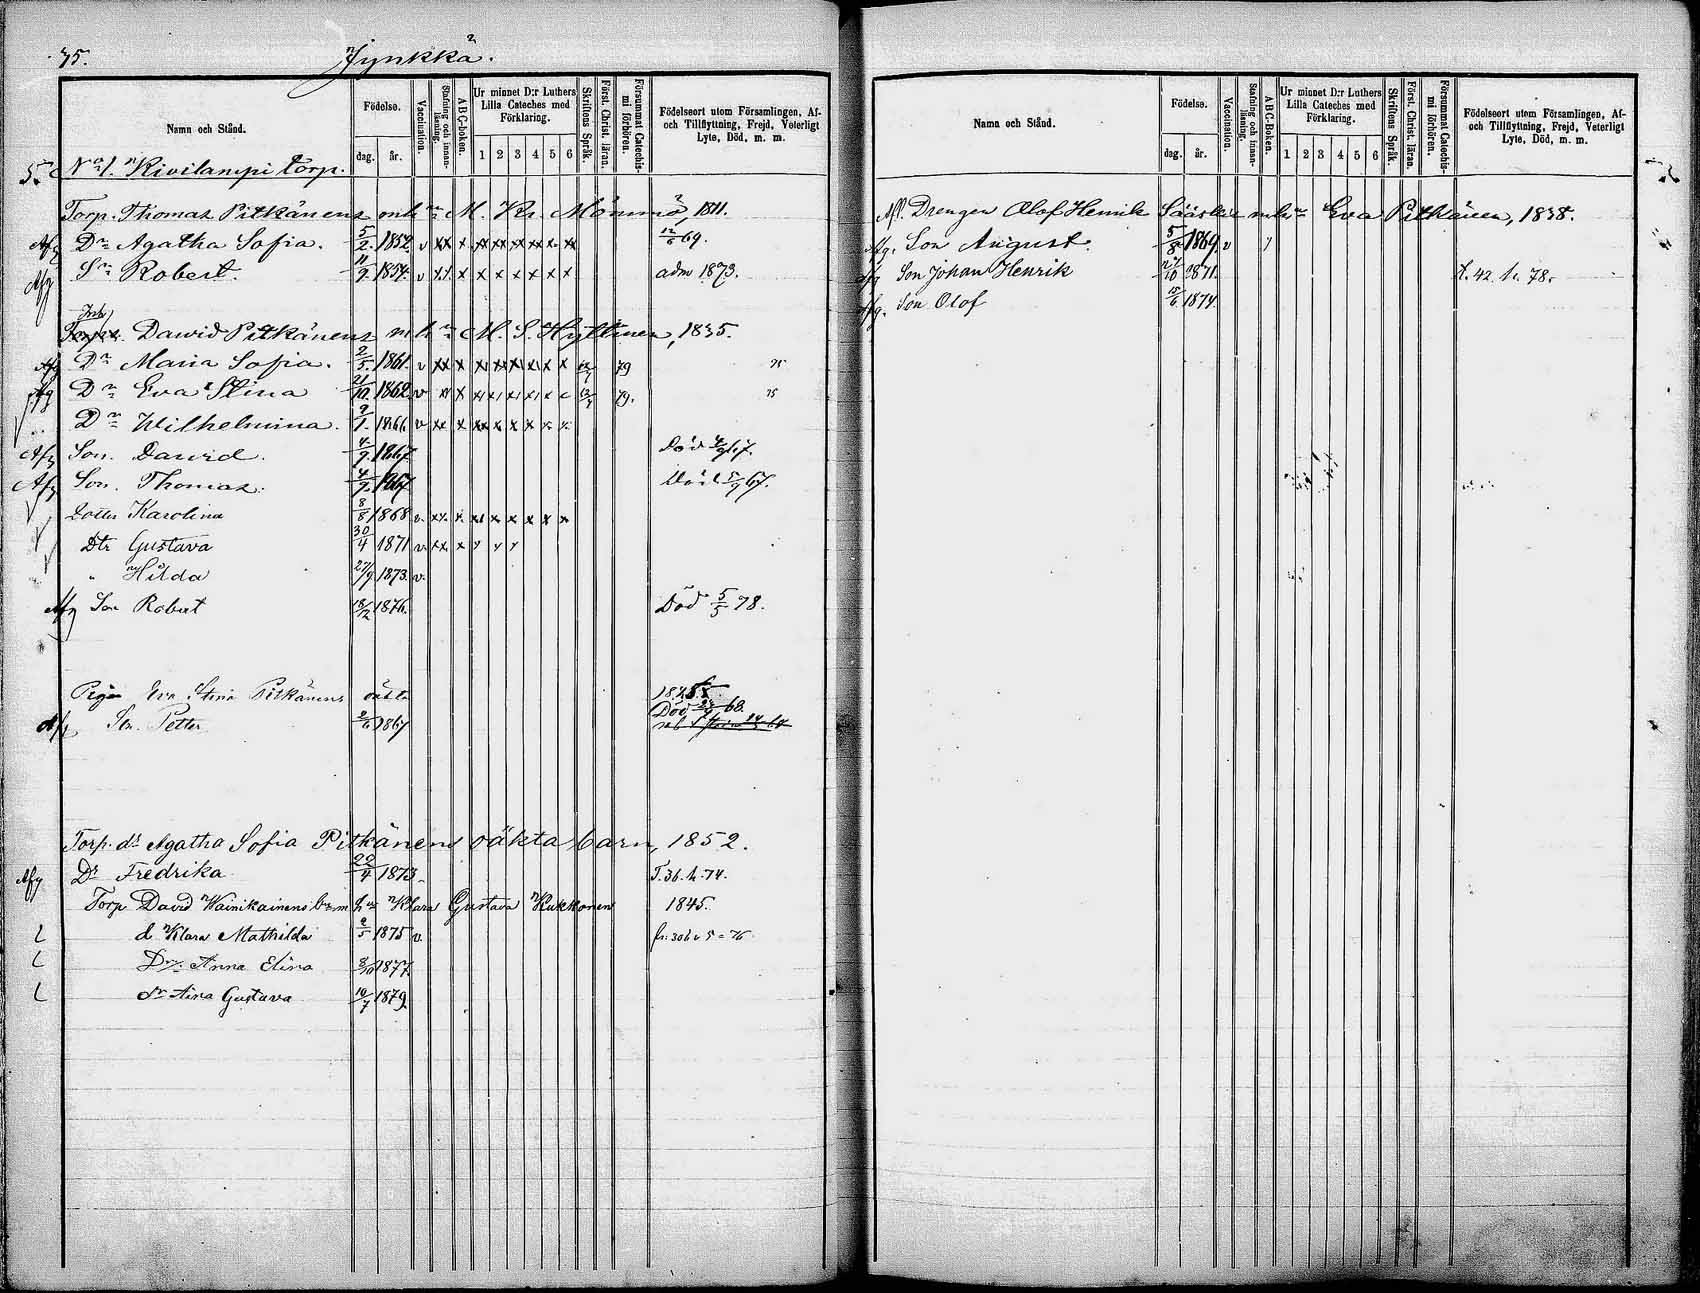 75.
Jynkkä.
Namn och Stånd.
Födelse.
dag. år.
Vaccination.
Stafning och innan-läsning.
A B C-boken.
Ur minnet D:r Luthers Lilla Cateches med Förklaring.
1 2 3 4 5 6
Skriftens Språk.
Först. Christ. läran.
Försummat Catechis-mi förhören.
Födelseort utom Församlingen, Af- och Tillflyttning, Frejd, Veterligt Lyte, Död, m. m.
5. No 1. Kivilampi torp.
Torp. Thomas Pitkänens och M. Kr. Mömmö, 1811.
Afg Dr Agatha Sofia. 5/2. 1852. v xx x xx xx xx xx x xx 12/6 69.
Afg Sn Robert. 11/9. 1854. v xx x x x x x x x adm 1873.
Inh
Torpar. Dawid Pitkänens m h M. S. Hyttinen, 1835.
Afg Dr Maria Sofia. 2/5. 1861. v xx x 79
Afg Dr Eva Stina 21/10. 1862. v x 79.
Dr Wilhelmina. 9/1. 1866 v xx x xx x x x
Afg Son. Dawid. 4/9. 1867. Död
Afg Son. Thomas. 4/9. 1867 Död 5/9 67.
Dotter Karolina 8/8 1868 v. xx x x x x x x x
Dtr Gustava 30/4 1871 v. xx x
" Hilda 27/9 1873. v.
Afg Son Robert 18/2 1876. Död 5/5 78.
Pigan Eva Stina Pitkänens oäkta
Afg Sn. Petter 1867 Död 68.
Torp. dr Agatha Sofia Pitkänens oäkta barn, 1852.
Afg Dr Fredrika 20/4 1873. T. 36. h. 74.
Torp David Wainikainens barn m h Klara Gustava Kukkonen 1845.
d Klara Mathilda 2/5 1875 v.
Dr Anna Elina 8/10 1877.
dr Aina Gustava 10/7 1879
Namn och Stånd.
Födelse.
dag. år.
Vaccination.
Stafning och innan-läsning.
A B C-Boken.
Ur minnet D:r Luthers Lilla Cateches med Förklaring.
1 2 3 4 5 6
Skriftens Språk.
Först. Christ. läran.
Försummat Catechis-mi förhören.
Födelseort utom Församlingen, Af- och Tillflyttning, Frejd, Veterligt Lyte, Död, m. m.
Afl. Drengen Olof Henrik Sääski mh Eva Pitkänen, 1838.
Afg. Son August. 5/8 1869 v
Afg Son Johan Henrik 27/10 1871. t. 42. h. 78.
Afg. Son Olof 15/6 1874